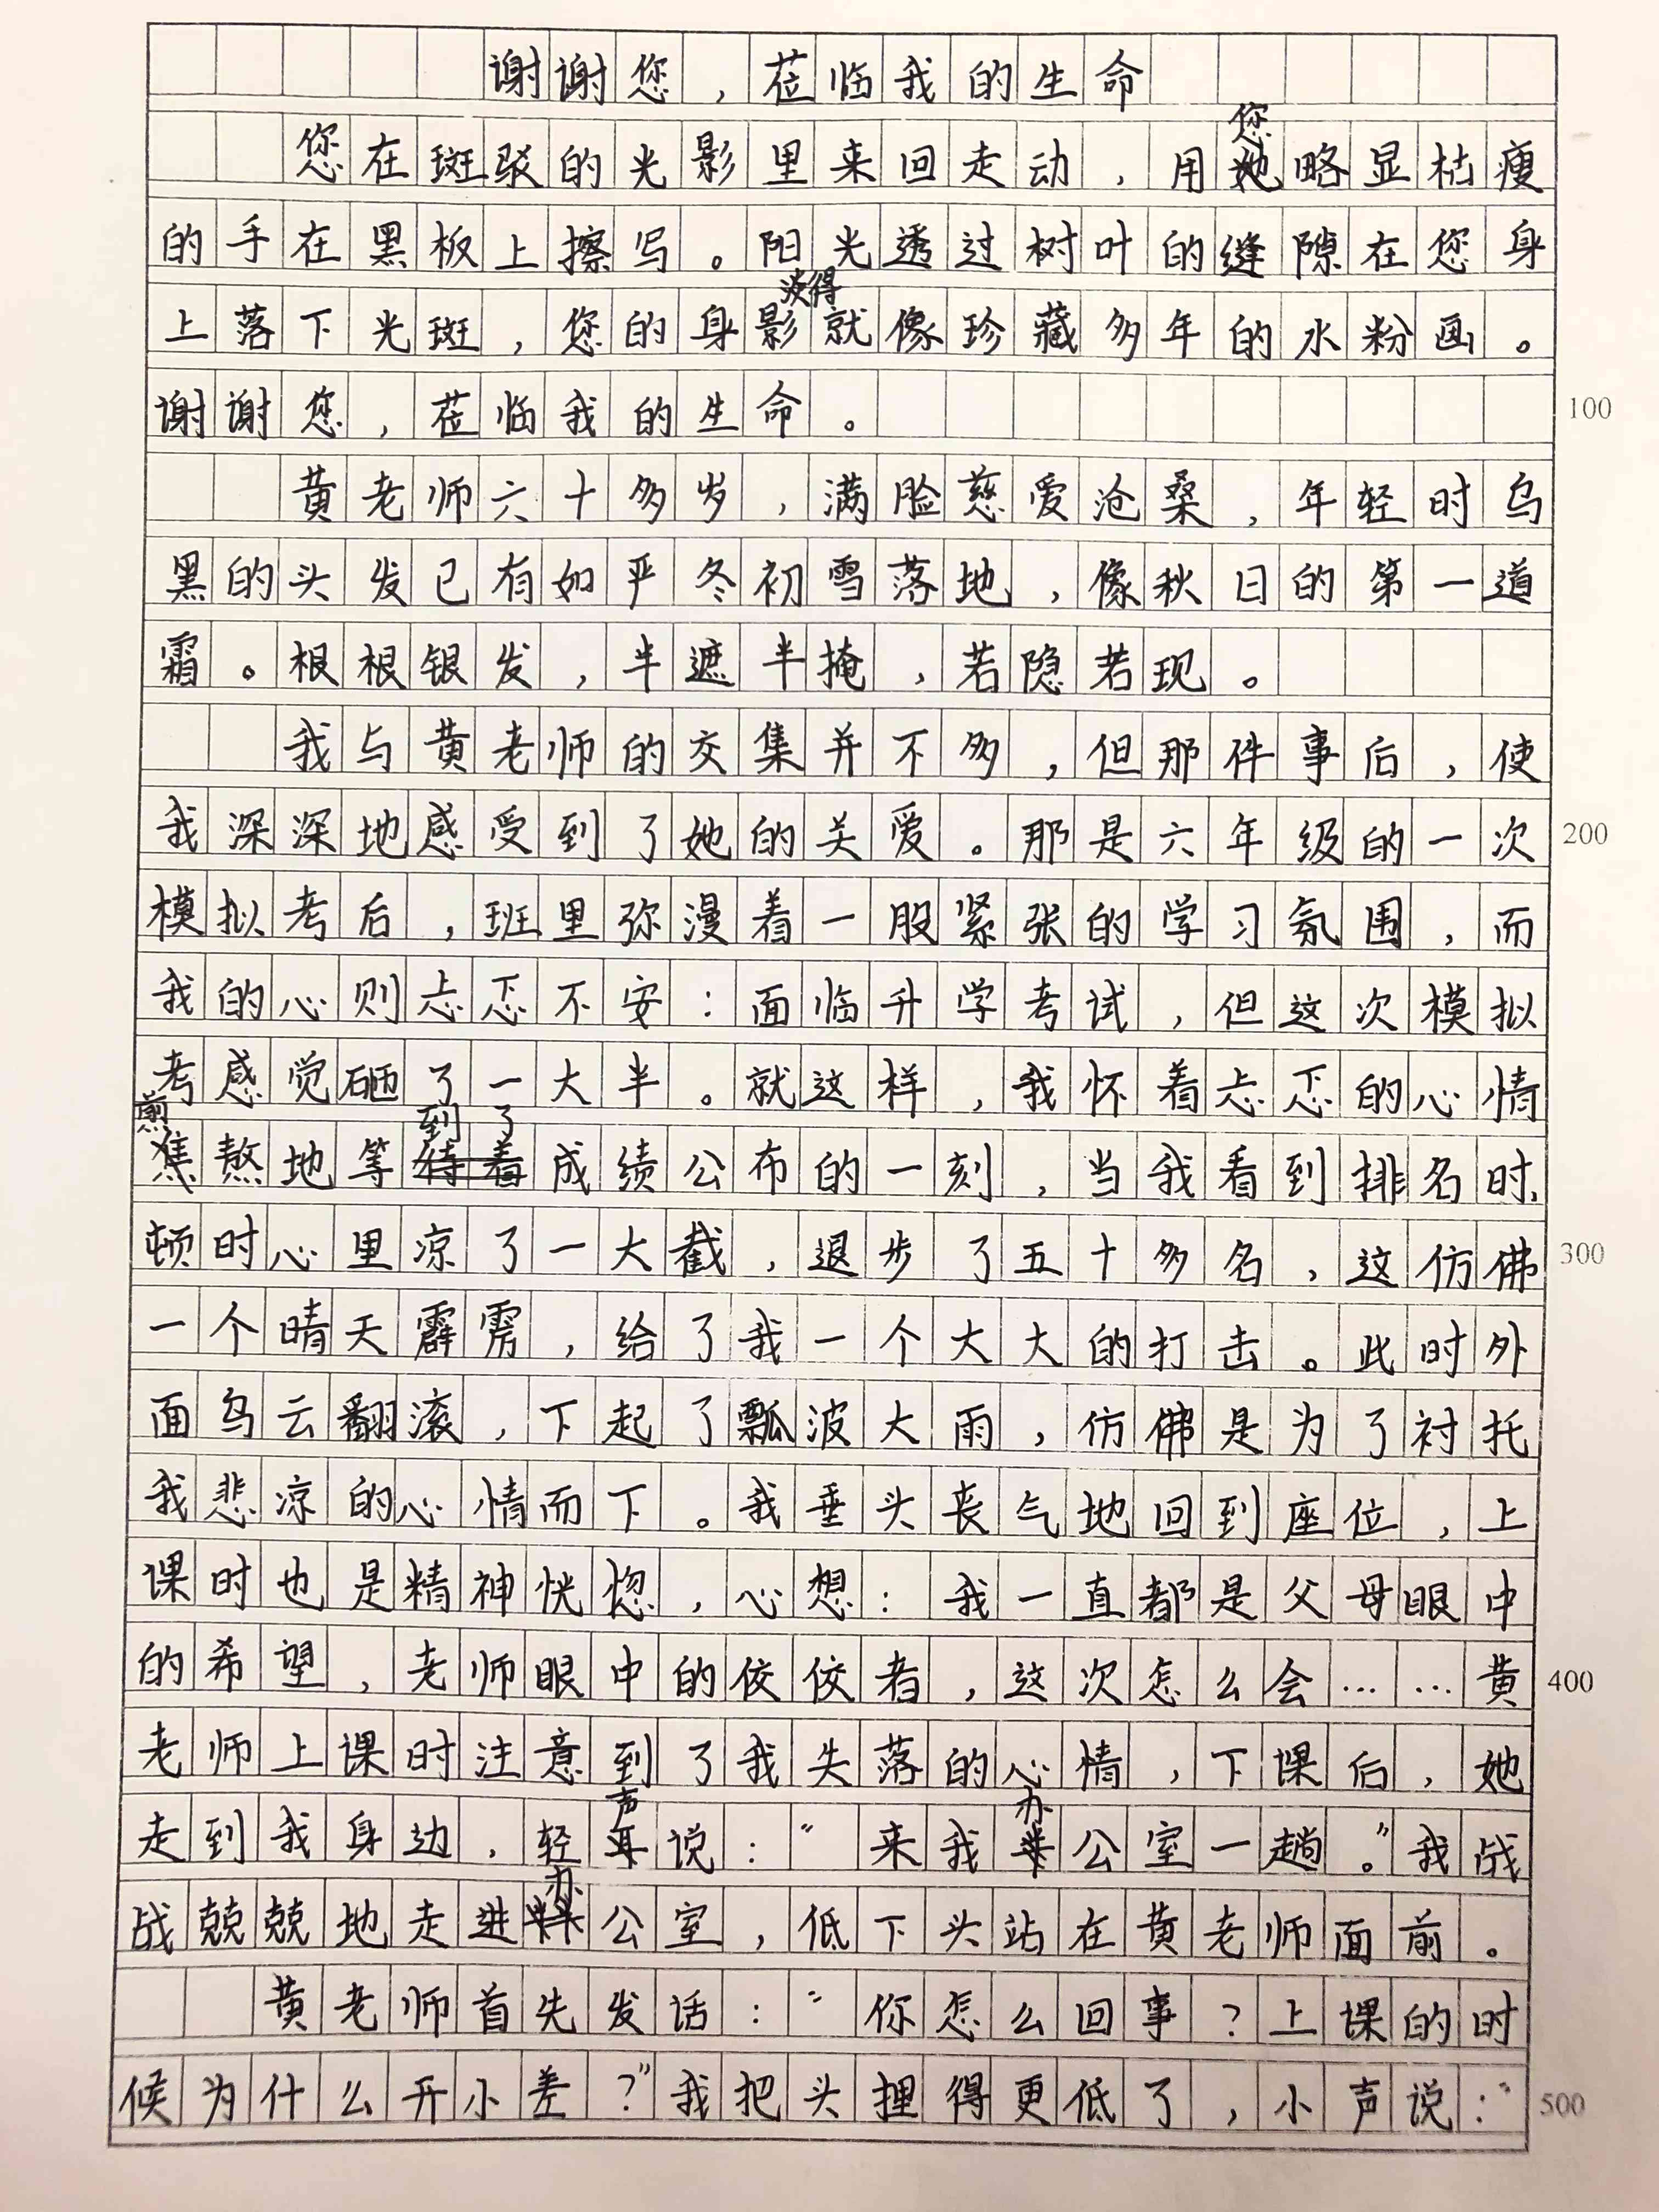 谢谢您，莅临我的生命
您在斑驳的光影里来回走动，用您略显枯瘦
的手在黑板上擦写。阳光透过树叶的缝隙在您身
上落下光斑，您的身影淡得就像珍藏多年的水粉画。
谢谢您，莅临我的生命。
100
黄老师六十多岁，满脸慈爱沧桑，年轻时乌
黑的头发已有如严冬初雪落地，像秋日的第一道
霜。根根银发，半遮半掩，若隐若现。
我与黄老师的交集并不多，但那件事后，使
我深深地感受到了她的关爱。那是六年级的一次
200
模拟考后，班里弥漫着一股紧张的学习氛围，而
我的心则忐忑不安：面临升学考试，但这次模拟
考感觉砸了一大半。就这样，我怀着忐忑的心情
煎熬地等到了成绩公布的一刻，当我看到排名时，
顿时心里凉了一大截，退步了五十多名，这仿佛
300
一个晴天霹雳，给了我一个大大的打击。此时外
面乌云翻滚，下起了瓢泼大雨，仿佛是为了衬托
我悲凉的心情而下。我垂头丧气地回到座位，上
课时也是精神恍惚，心想：我一直都是父母眼中
的希望，老师眼中的佼佼者，这次怎么会……黄
400
老师上课时注意到了我失落的心情，下课后，她
走到我身边，轻声说：“来我办公室一趟。”我战
战兢兢地走进办公室，低下头站在黄老师面前。
黄老师首先发话：“你怎么回事？上课的时
候为什么开小差？”我把头埋得更低了，小声说：“
500